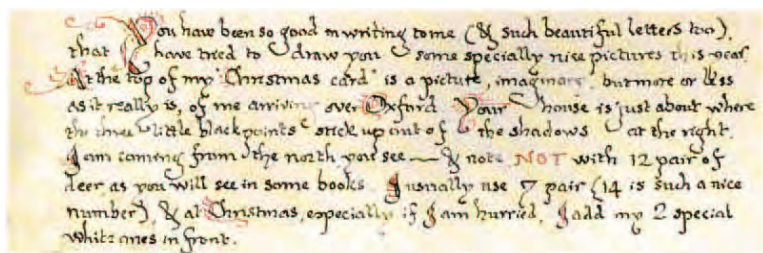 You have been so good in writing to me (& such beautiful letters too),
that I have tried to draw you some specially nice pictures this year.
At the top of my "Christmas card" is a picture, imaginary, but more or less
as it really is, of me arriving over Oxford. Your house is just about where
the three little black points stick up out of the shadows at the right.
I am coming from the north you see — & note NOT with 12 pair of
deer as you will see in some books. I usually use 7 pair (14 is such a nice
number), & at Christmas, especially if I am hurried, I add my 2 special
white ones in front.